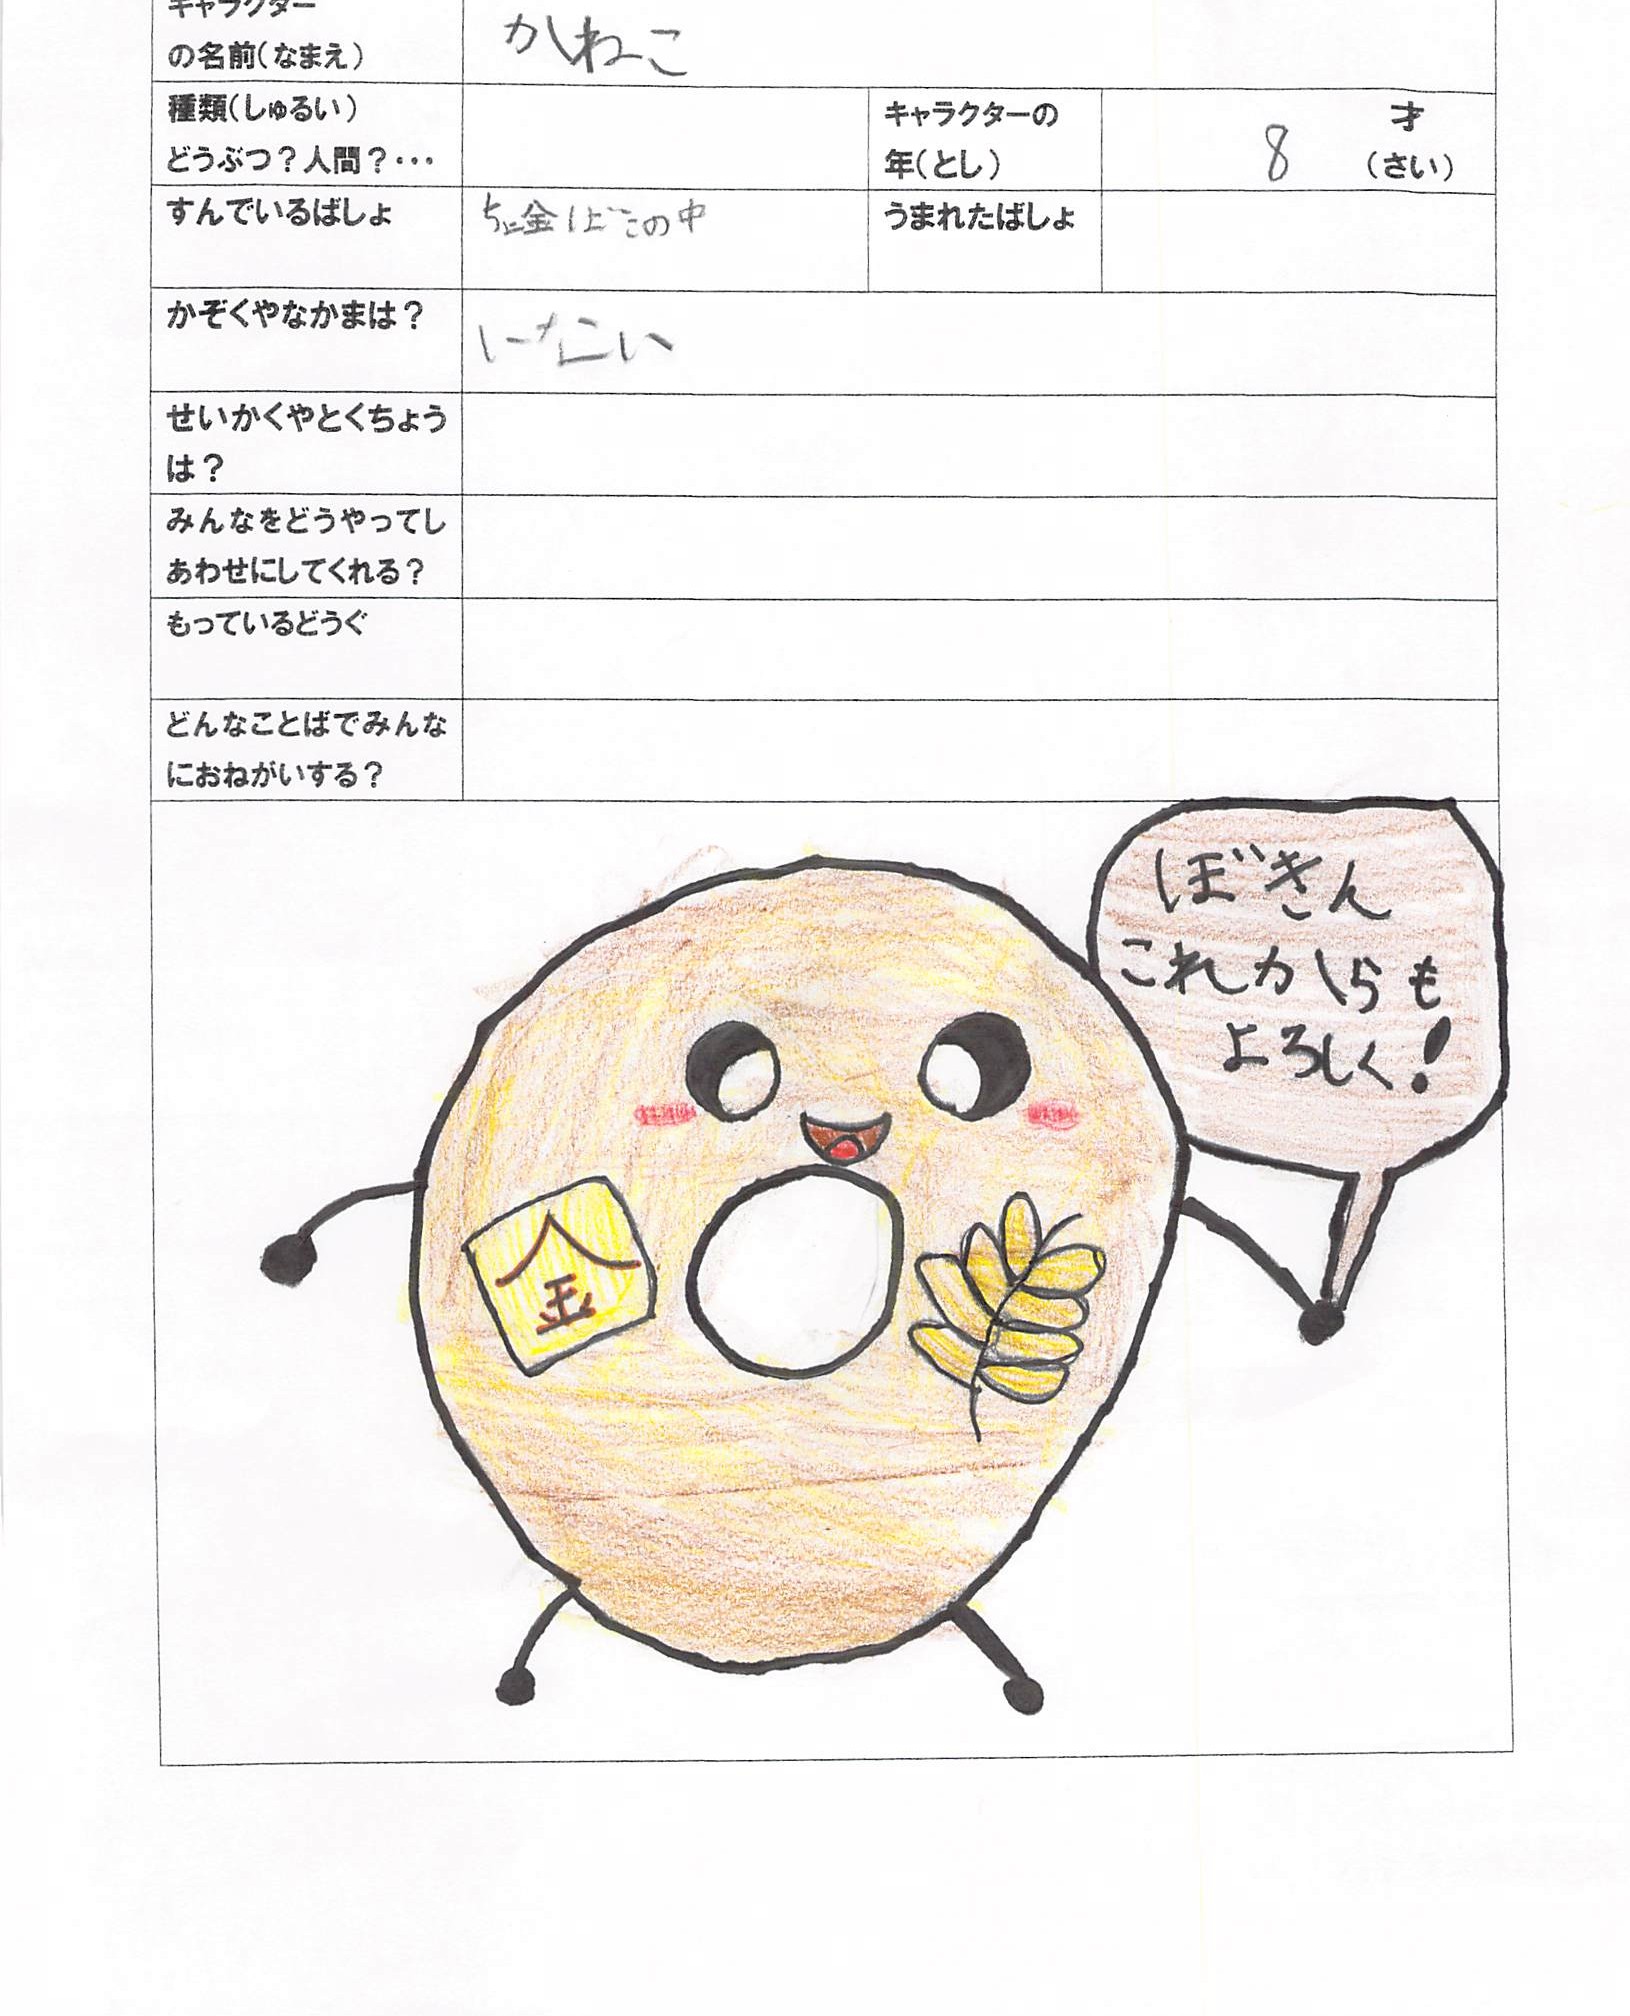 キャラクター
の名前(なまえ)
かねこ
種類(しゅるい)
どうぶつ?人間?・・・
キャラクターの
年(とし)
8
才
(さい)
すんでいるばしょ
ちょ金ばこの中
うまれたばしょ
かぞくやなかまは?
いない
せいかくやとくちょう
は?
みんなをどうやってし
あわせにしてくれる?
もっているどうぐ
どんなことばでみんな
におねがいする?
ぼきん
これからも
よろしく!
金